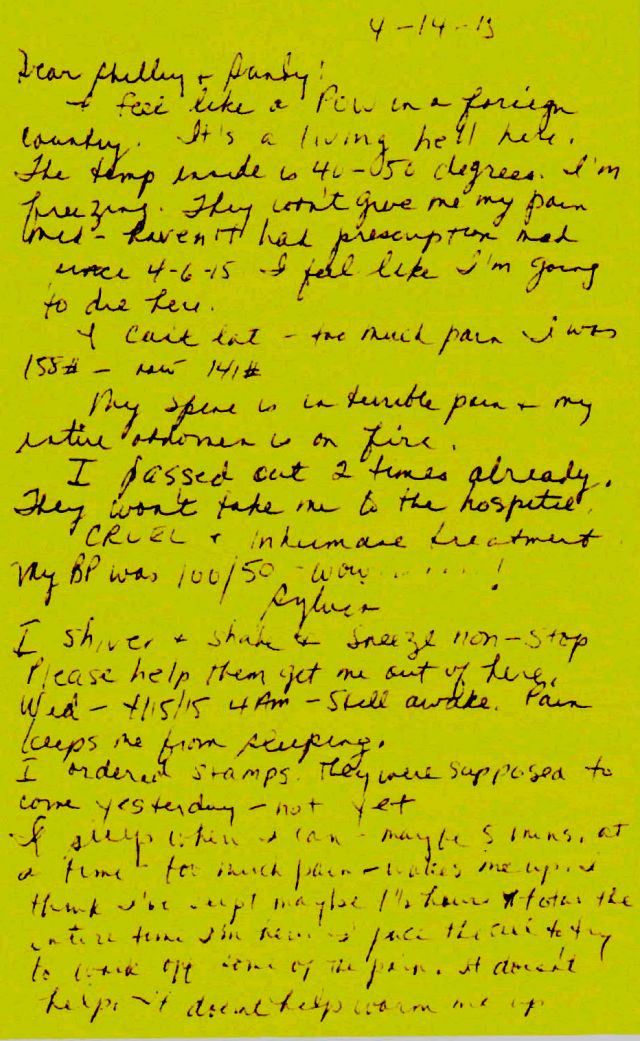 4-14-15
Dear Shelley + Sandy!
I feel like a POW in a foriegn
country. It's a living hell here.
The temp inside is 40-050 degrees. I'm
freezing. They won't give me my pain
med - haven't had prescription med
since 4-6-15 I feel like I'm going
to die here.
I can't eat - too much pain I was
158# - now 141#
My spine is in terrible pain + my
entire abdomen is on fire.
I passed out 2 times already.
They won't take me to the hospital.
CRUEL + Inhumane treatment
My BP was 100/50 - wow........!
Sylvia
I shiver + shake & sneeze non-stop
Please help them get me out of here.
Wed - 4/15/15 4 AM - Still awake. Pain
keeps me from sleeping.
I ordered stamps. They were supposed to
come yesterday - not yet
I sleep when I can - maybe 5 mins. at
a time - too much pain - wakes me up. I
think I've slept maybe 1½ hours total the
entire time I'm here. I pace the cell to try
to work off some of the pain. It doesn't
help. It doesn't help warm me up